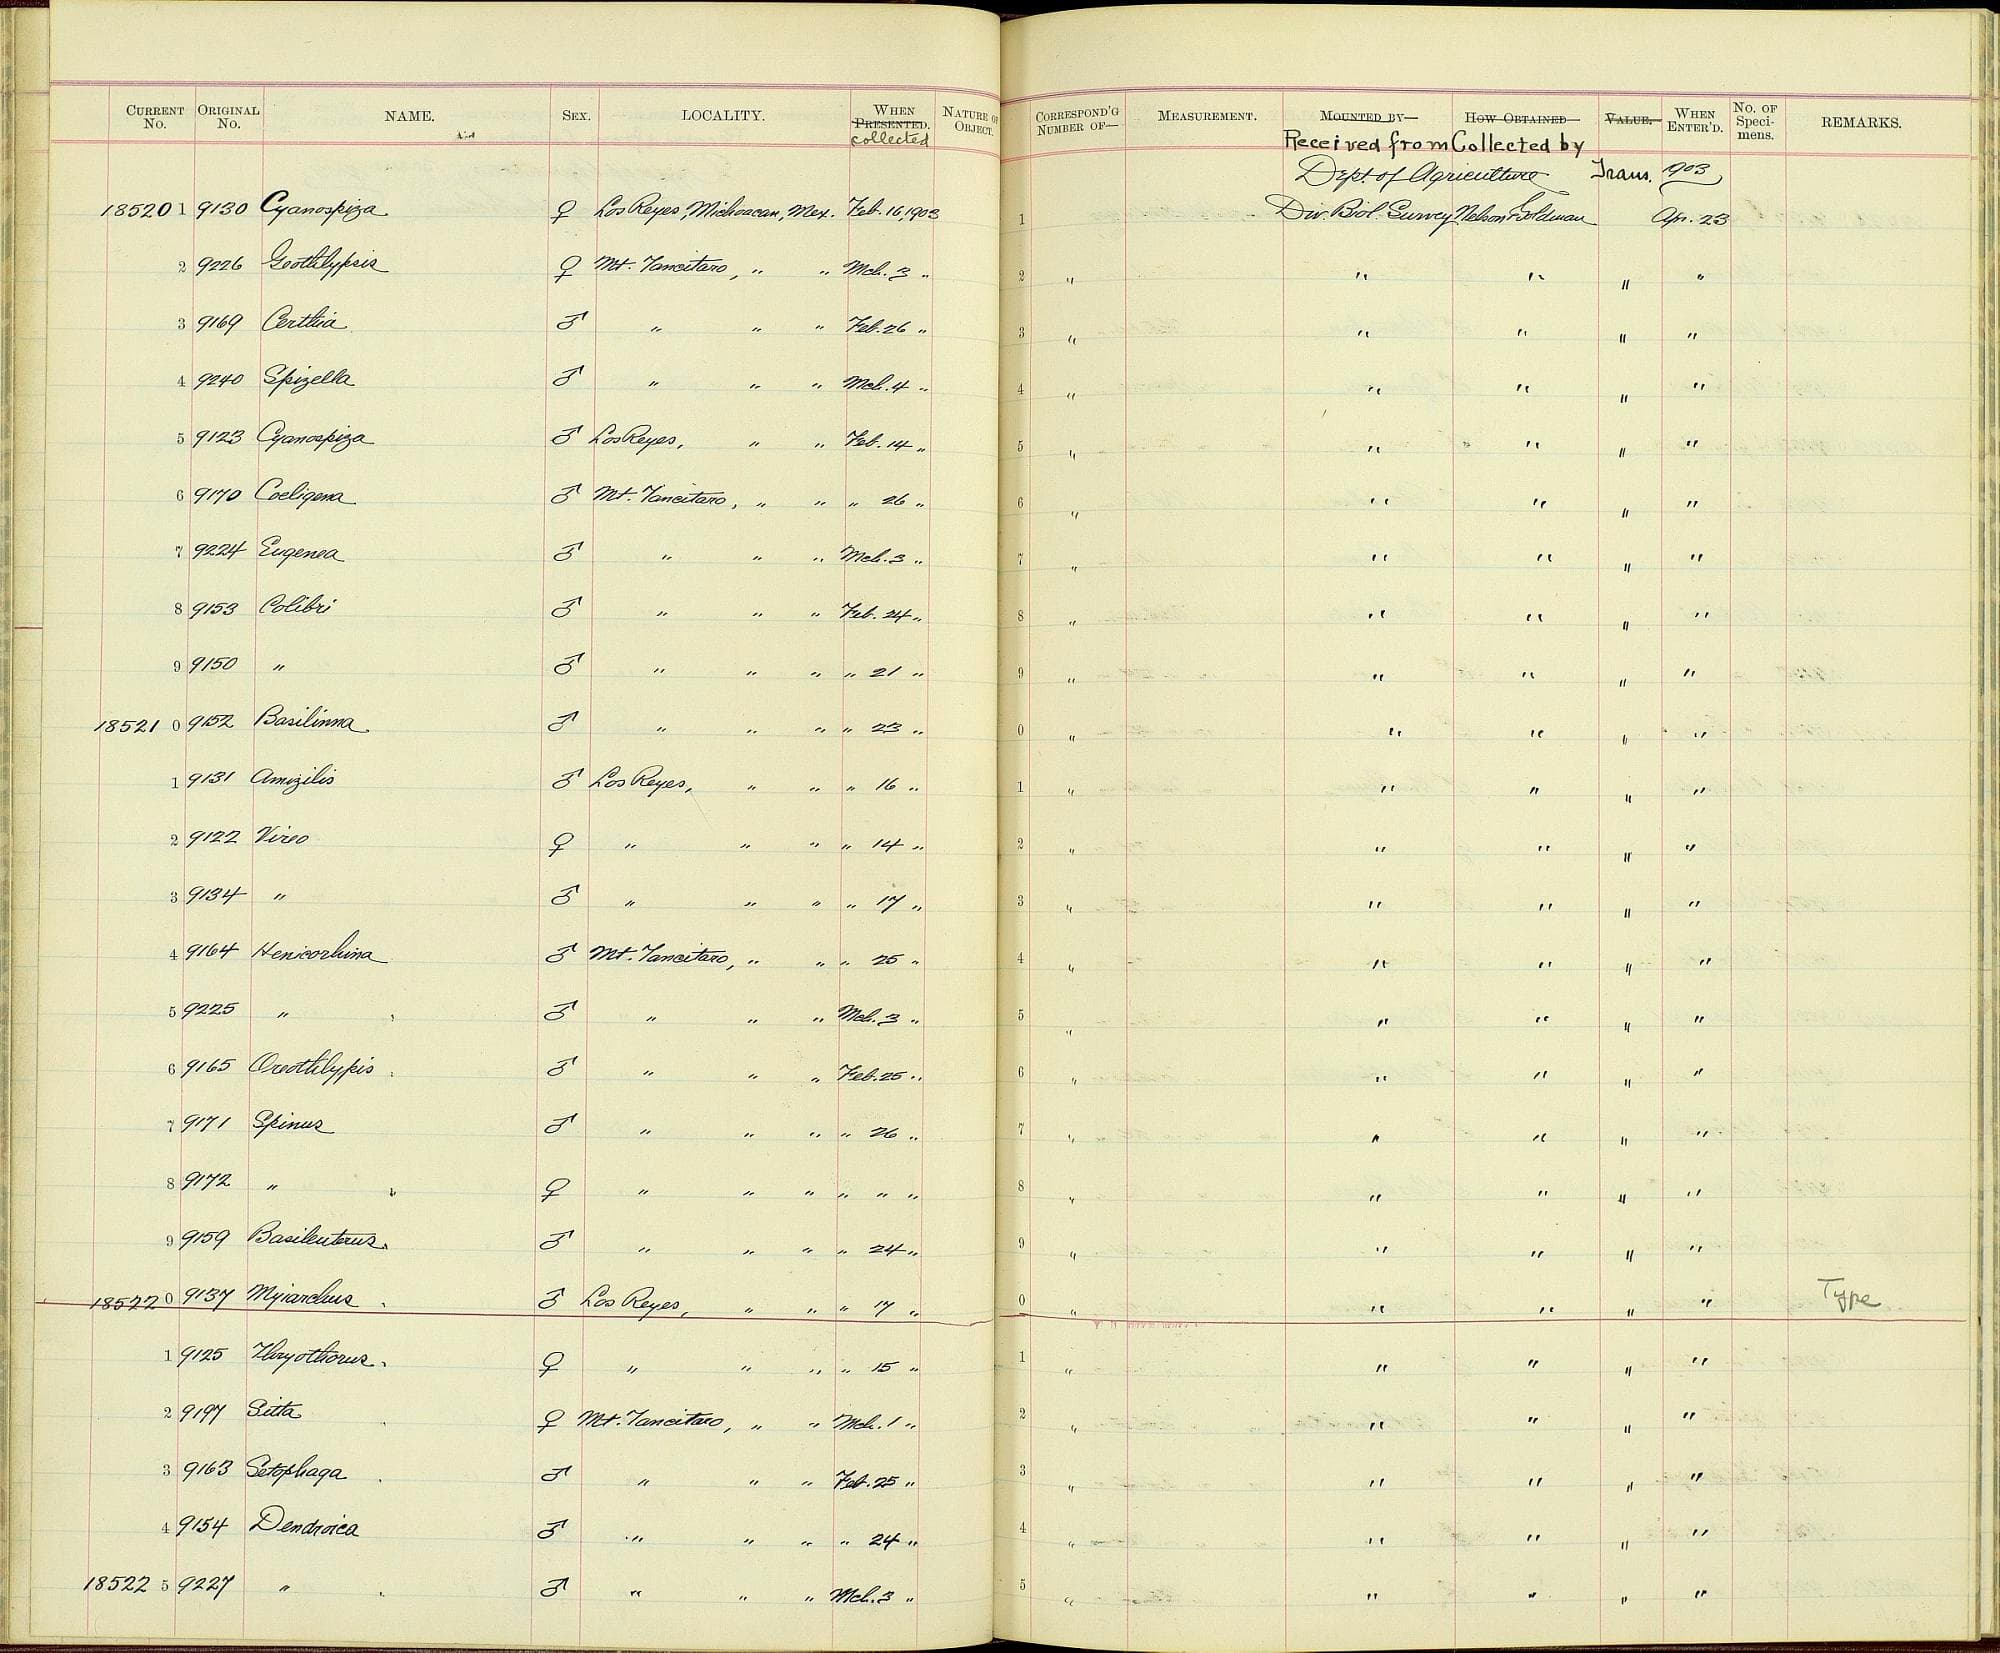 CURRENT No. ORIGINAL No. NAME. SEX. LOCALITY. WHEN PRESENTED. collected NATURE OF OBJECT. CORRESPOND'G NUMBER OF— MEASUREMENT. MOUNTED BY— Received from HOW OBTAINED— Collected by VALUE. WHEN ENTER'D. No. OF Speci- mens. REMARKS.
Dept. of Agriculture Trans. 1903
185201 9130 Cyanospiza ♀ Los Reyes, Michoacan, Mex. Feb. 16, 1903 1 Div. Biol. Survey Nelson & Goldman Apr. 23
2 9226 Geothlypsis ♀ Mt. Tancitaro, " " Mch. 3 " 2 " " " " "
3 9169 Certhia ♂ " " " Feb. 26 " 3 " " " " "
4 9240 Spizella ♂ " " " Mch. 4 " 4 " " " " "
5 9123 Cyanospiza ♂ Los Reyes, " " Feb. 14 " 5 " " " " "
6 9170 Coeligena ♂ Mt. Tancitaro, " " " 26 " 6 " " " " "
7 9224 Eugenea ♂ " " " Mch. 3 " 7 " " " " "
8 9153 Colibri ♂ " " " Feb. 24 " 8 " " " " "
9 9150 " ♂ " " " " 21 " 9 " " " " "
18521 0 9152 Basilinna ♂ " " " " 23 " 0 " " " " "
1 9131 Amizilis ♂ Los Reyes, " " " 16 " 1 " " " " "
2 9122 Vireo ♀ " " " " 14 " 2 " " " " "
3 9134 " ♂ " " " " 17 " 3 " " " " "
4 9164 Henicorhina ♂ Mt. Tancitaro, " " " 25 " 4 " " " " "
5 9225 " ♂ " " " Mch. 3 " 5 " " " " "
6 9165 Oreothlypis ♂ " " " Feb. 25 " 6 " " " " "
7 9171 Spinus ♂ " " " " 26 " 7 " " " " "
8 9172 " ♀ " " " " " " 8 " " " " "
9 9159 Basileuterus ♂ " " " " 24 " 9 " " " " "
18522 0 9137 Myiarchus ♂ Los Reyes, " " " 17 " 0 " " " " " Type
1 9125 Thryothorus ♀ " " " " 15 " 1 " " " " "
2 9197 Sitta ♀ Mt. Tancitaro, " " Mch. 1 " 2 " " " " "
3 9163 Setophaga ♂ " " " Feb. 25 " 3 " " " " "
4 9154 Dendroica ♂ " " " " 24 " 4 " " " " "
18522 5 9227 " ♂ " " " Mch. 3 " 5 " " " " "